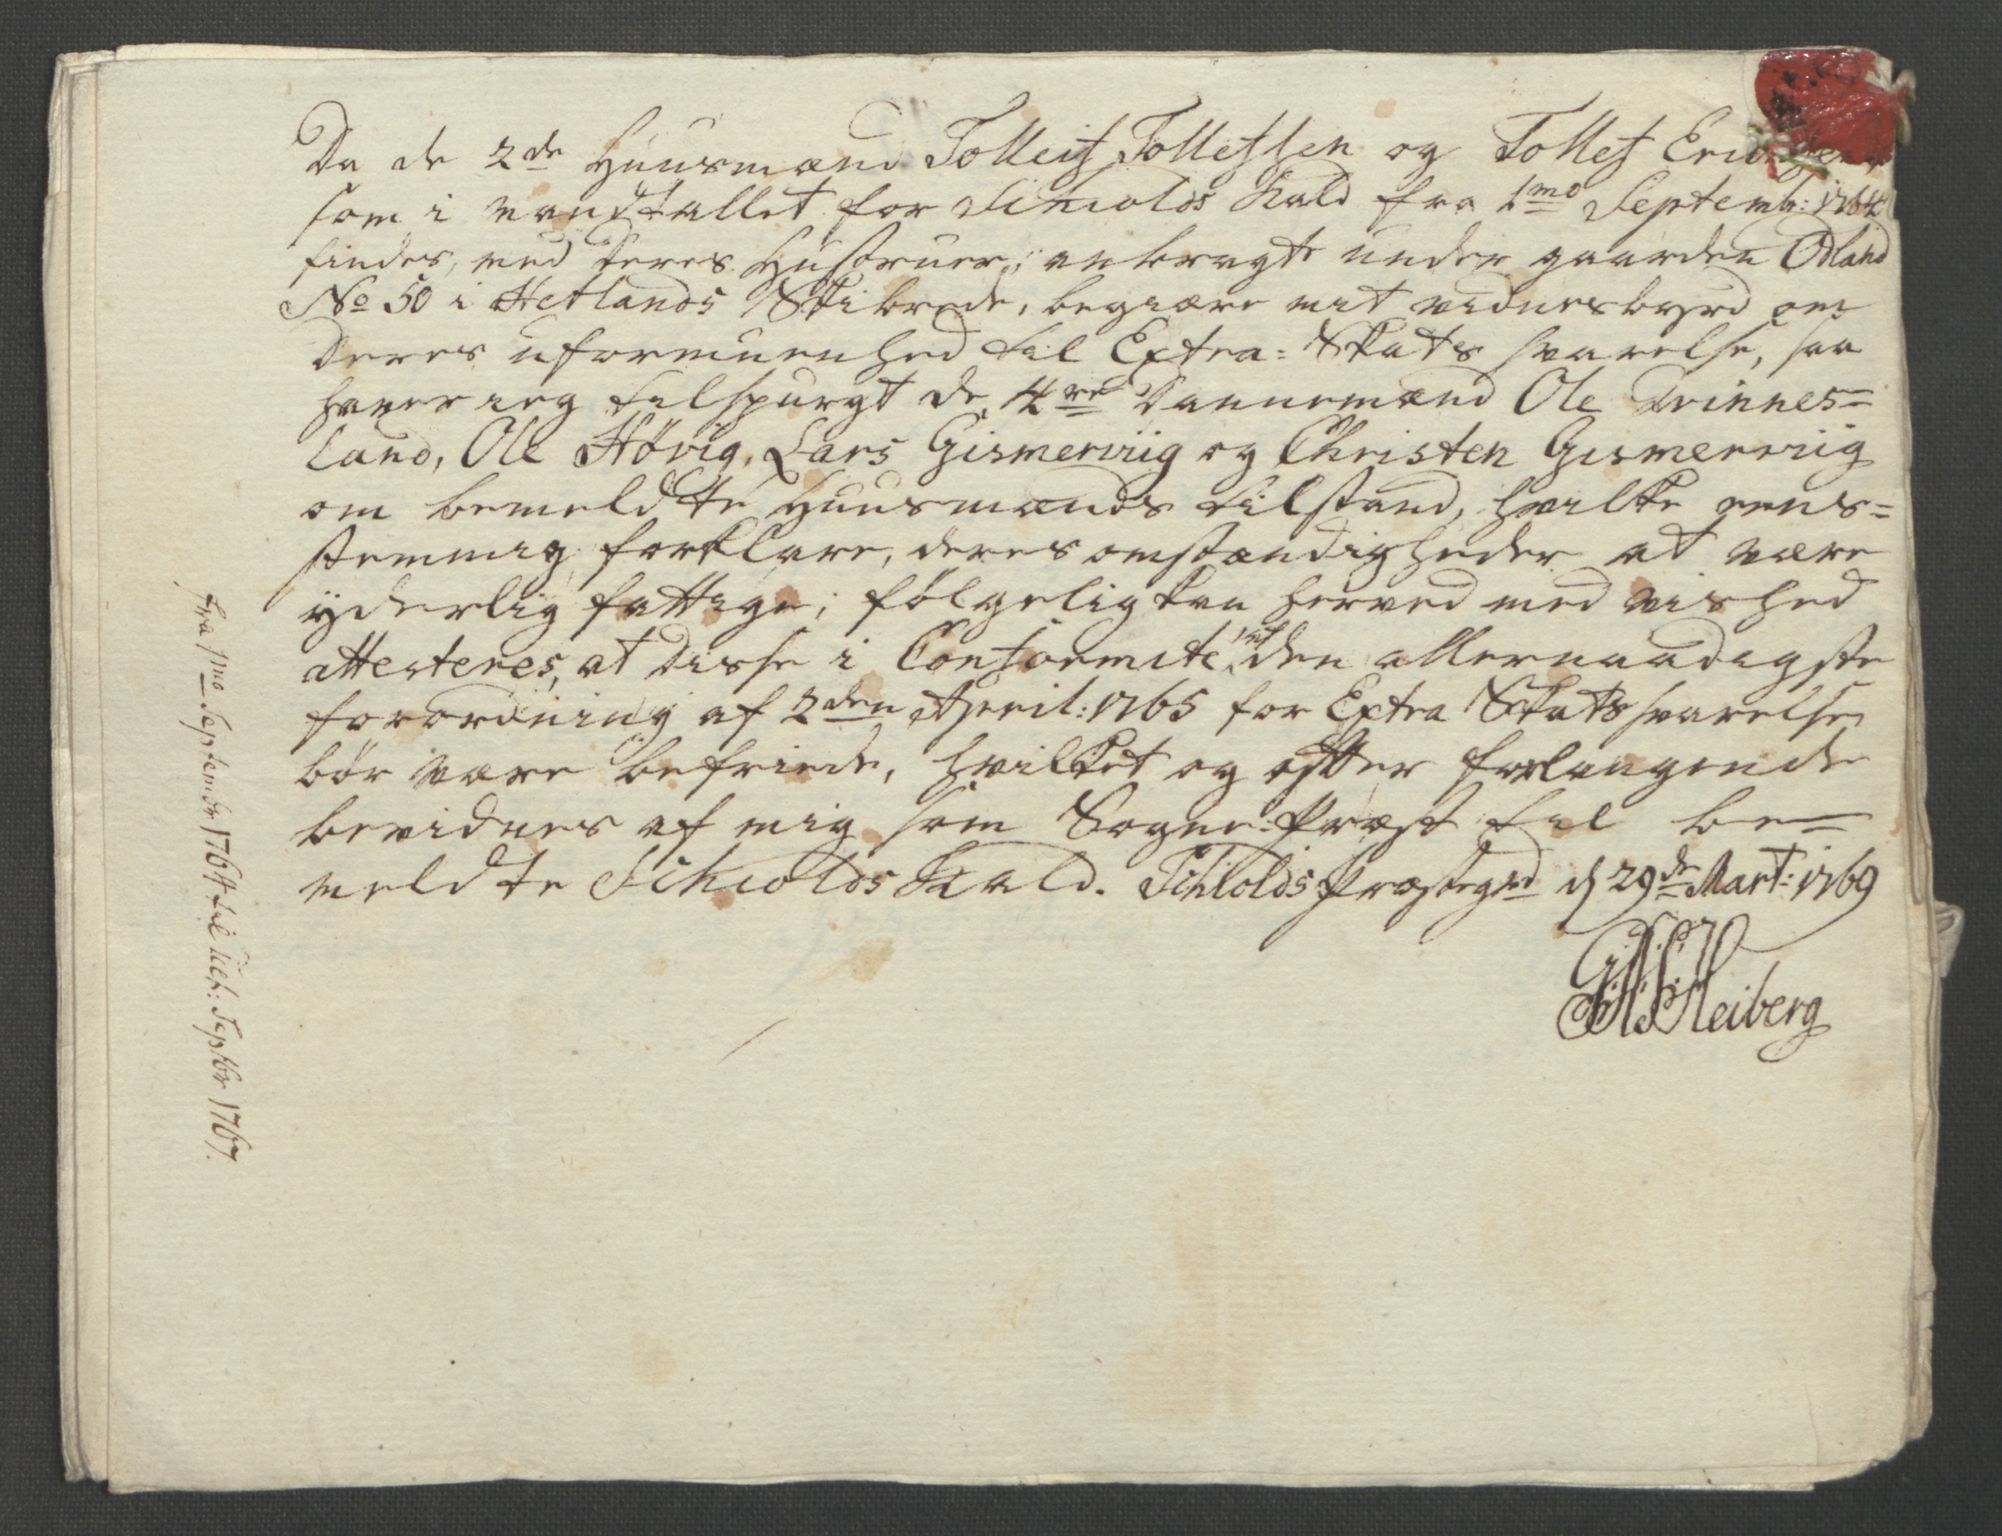 Da de 2de Huusmænd Tolleif Tollefsen og Tollef
som i mandtallet for Schiolds Kald fra 1mo Septembr: 1764
findes, med deres Hustruer, anbragte under gaarden Odland
No 50 i Hetlands Skibrede, begiære mit vidnesbyrd om
deres uformuenhed til Extra-Skats svarelse, saa
haver ieg tilspurgt de 4re Dannemænd Ole Qvinnes=
land, Ole Høvig, Lars Gismerviig og Christen Gismerviig
om bemeldte Huusmænds tilstand, hvilke eens=
stemmig forklare, deres omstændigheder at være
yderlig fattige; følgelig kan herved med vished
attesteres, at disse i Conformite den allernaadigste
forordning af 2den April: 1765 for Extra Skats svarelse
bør være befriede, hvilket og efter forlangende
bevidnes af mig som Sogne-Præst til be=
meldte Schiolds Kald. Schiolds Præstegrd d 29de Mart: 1769
Heiberg
fra 1mo Septembr 1764 til ult: Septbr 1767.